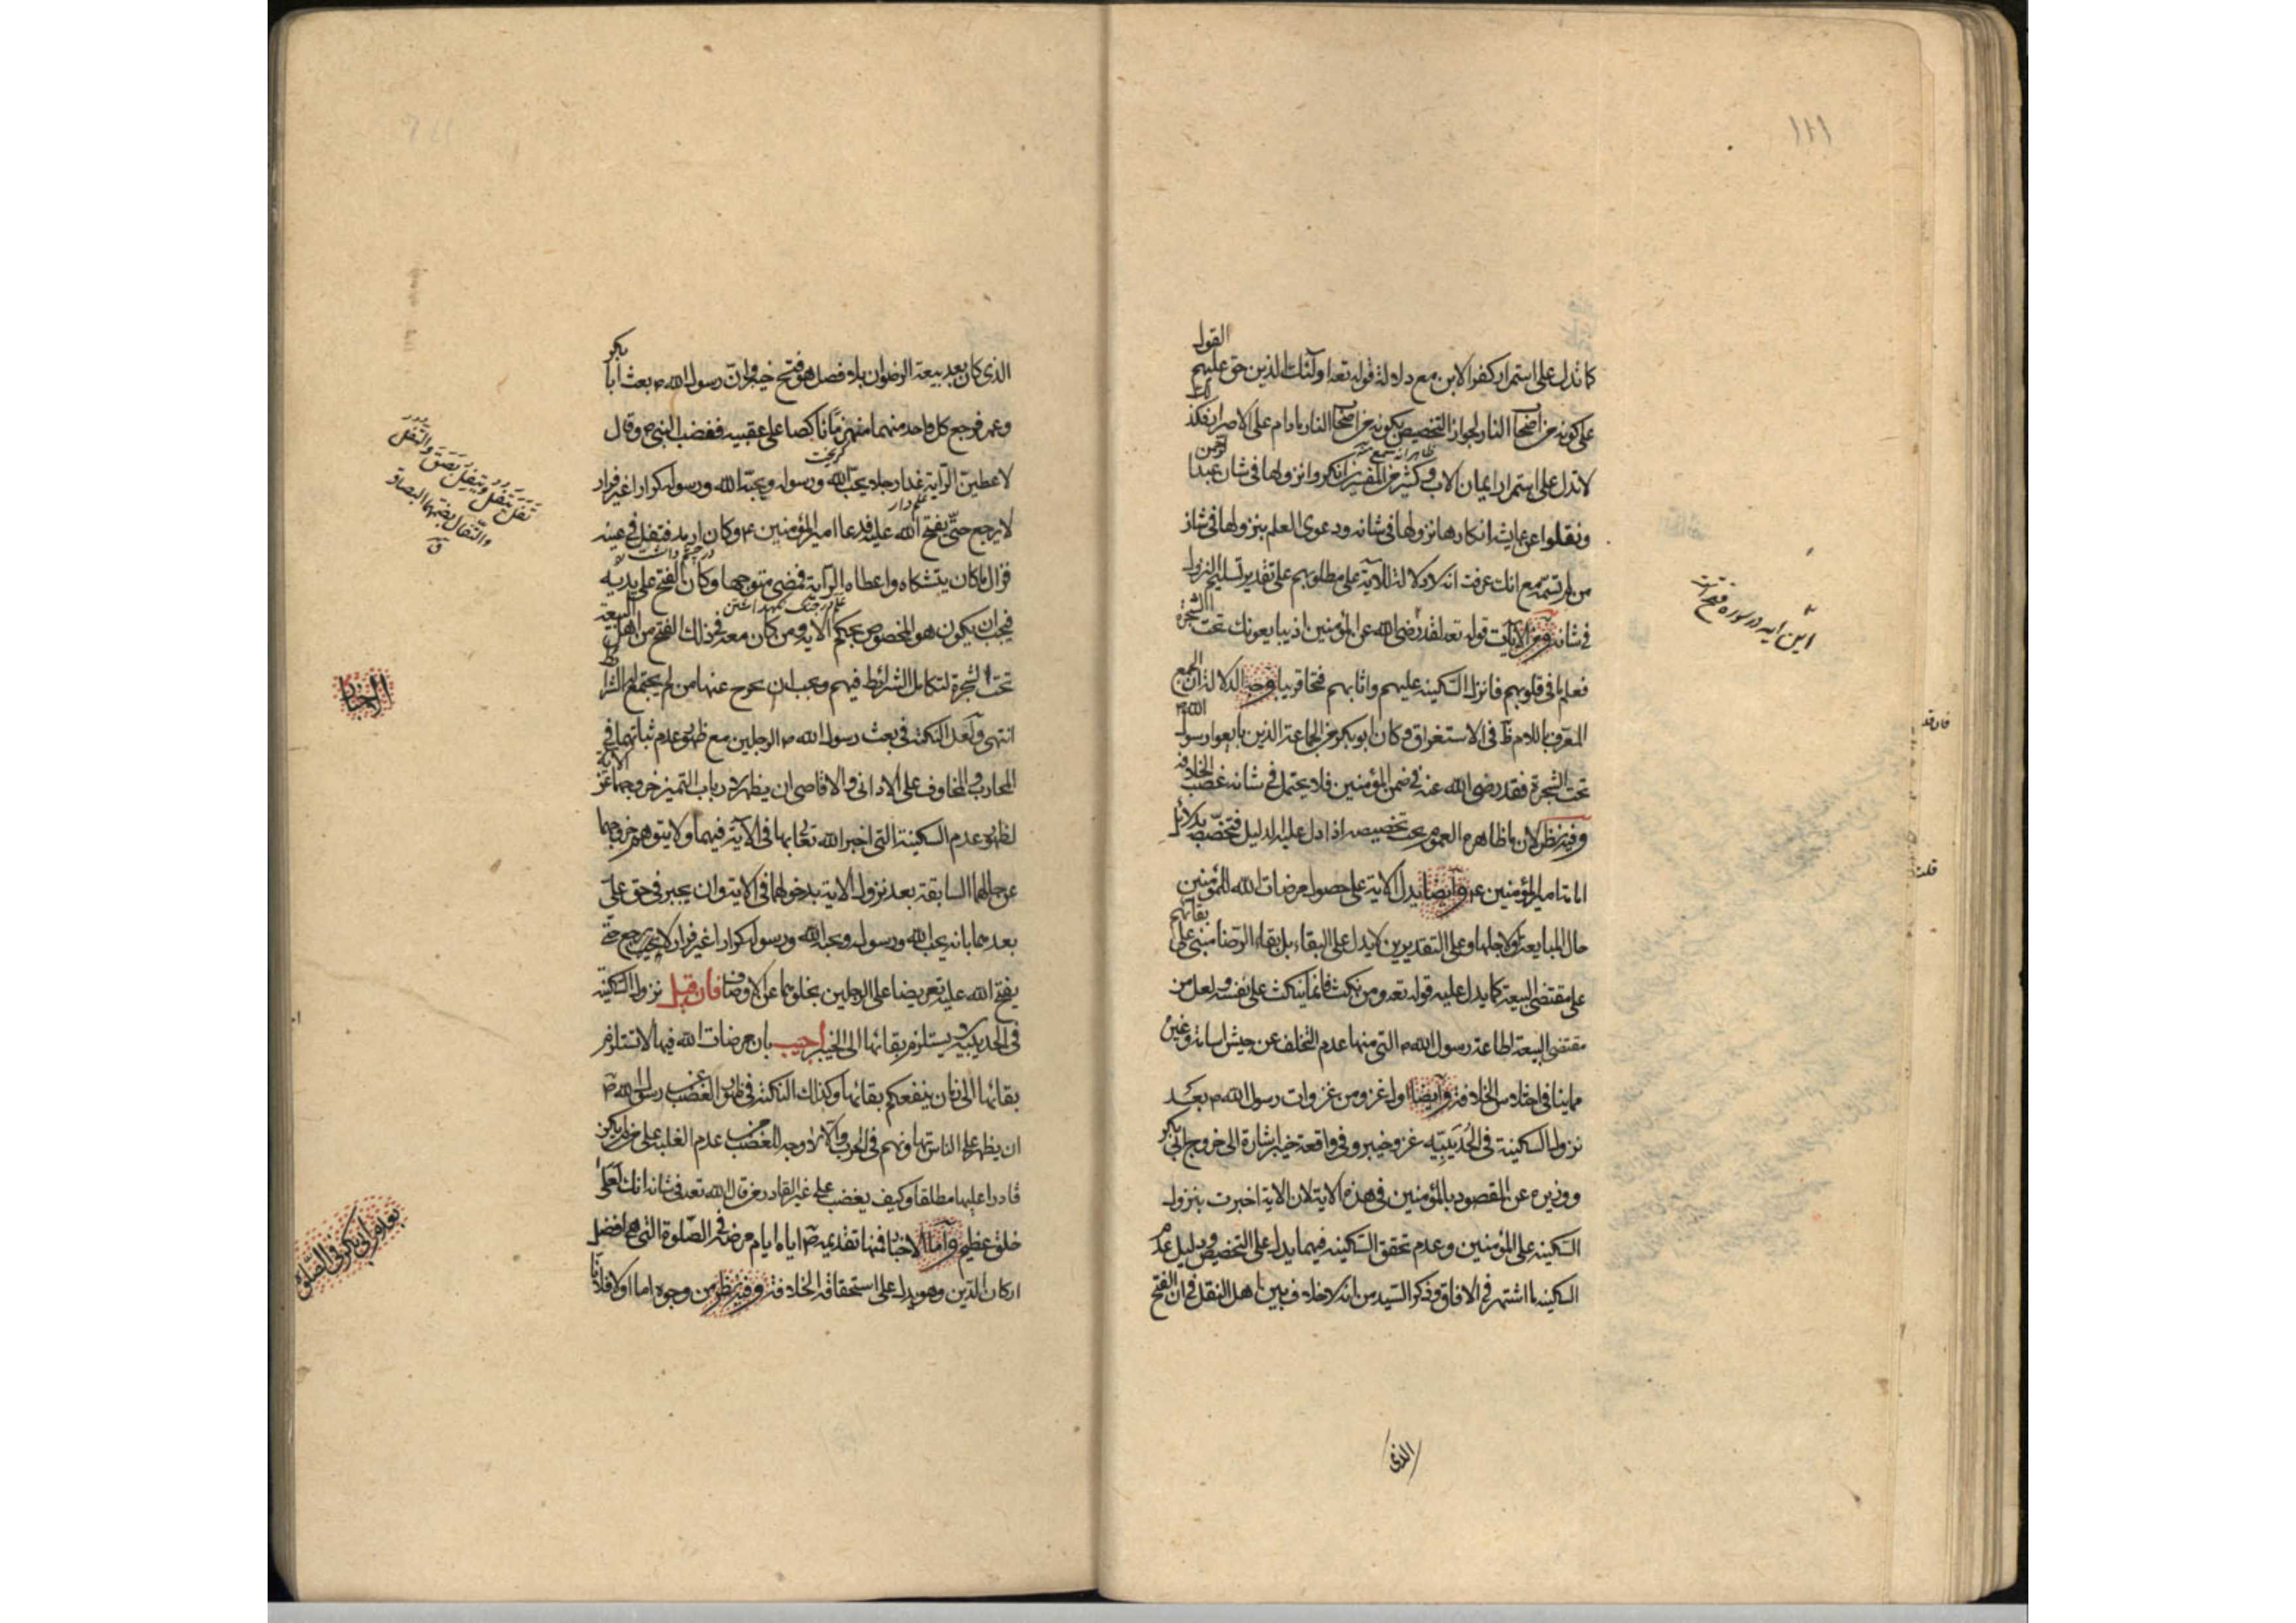 ١١١
كما تدل على استمرار كفر الابن مع دلالة قوله تعه اولئك الذين حق عليهم القول
على كونه من اصحاب النار لجواز التخصيص بكونه من اصحاب النار مادام على الاصرار فكذلك
لا تدل على استمرار ايمان الاب وكثير من المفسرين انكروا نزولها في شان عبد الرحمن
ونقلوا عن عايشه انكارها نزولها في شانه ودعوى العلم بنزولها في شان
من لم تسمه مع انك عرفت انه لا دلالة للاية على مطلوبهم على تقدير تسليم النزول
في شانه ومن الآيات قوله تعه لقد رضى الله عن المؤمنين اذ يبايعونك تحت الشجرة
فعلم ما في قلوبهم فانزل السكينه عليهم واثابهم فتحا قريبا وجه الدلالة ان الجمع
المعرف باللام ظ في الاستغراق وكان ابو بكر من الجماعة الذين بايعوا رسول الله ص
تحت الشجرة فقد رضى الله عنه في ضمن المؤمنين فلا يحتمل في شانه غصب الخلافة
وفيه نظر لان ما ظاهره العموم يجب تخصيصه اذا دل عليه الدليل فتخصص بدلائل
امامة امير المؤمنين ع وايضا يدل الاية على حصول مرضات الله للمؤمنين
حال المبايعة ولاجلها وعلى التقديرين لا يدل على البقاء بل بقاء الرضا مبنى على بقائهم
على مقتضى البيعة كما يدل عليه قوله تعه ومن نكث فانما ينكث على نفسه ولعل من
مقتضى البيعة اطاعة رسول الله ص التى منها عدم التخلف عن جيش اسامة وغيره
مما ينافى اختلاس الخلافة وايضا اول غزو من غزوات رسول الله ص بعد
نزول السكينة في الحديبيه غزو خيبر وفي واقعة خيبر اشارة الى خروج ابى بكر
ووزيره عن المقصود بالمؤمنين في هذه الاية لان الاية اخبرت بنزول
السكينه على المؤمنين وعدم تحقق السكينه فيهما يدل على التخصيص ودليل عدم
السكينه ما اشتهر في الافاق وذكر السيد من انه لا خلاف بين اهل النقل في ان الفتح
الذى
اين آيه در سوره فتح است
قلت
الذى كان بعد بيعة الرضوان بلا فصل هو فتح خيبر وان رسول الله ص بعث ابا بكر
وعمر فرجع كل واحد منهما منهزما ناكصا على عقبيه فغضب النبى ص وقال
لاعطين الراية غدا رجلا يحب الله ورسوله ويحبه الله ورسوله كرارا غير فرار
لا يرجع حتى يفتح الله عليه فدعا امير المؤمنين ع وكان ارمد فتفل في عينه
فزال ما كان يتشكاه واعطاه الراية فمضى متوجها وكان الفتح على يديه
فيجب ان يكون هو المخصوص بحكم الاية ومن كان معه في ذلك الفتح من اهل البيعة
تحت الشجرة لتكامل الشرائط فيهم ويجب ان يخرج عنها من لم يجتمع له الشرائط
انتهى ولعل النكتة في بعث رسول الله ص الرجلين مع ظهور عدم ثباتهما في
المحارب والمخاوف على الادانى والاقاصى ان يظهر لارباب التميز خروجهما عن الاية
لظهور عدم السكينة التى اخبر الله تعالى بها في الاية فيهما ولا يتوهم خروجهما
عن حالهما السابقة بعد نزول الاية بدخولهما في الاية وان يخبر في حق على
بعدهما بانه يحب الله ورسوله ويحبه الله ورسوله كرارا غير فرار لا يرجع حتى
يفتح الله عليه تعريضا على الرجلين بخلوهما عن الاوصاف فان قيل نزول السكينة
في الحديبيه لا يستلزم بقائها الى الخيبر اجيب بان مرضات الله فيها لا تستلزم
بقائها الى زمان ينفعكم بقائها وكذلك النكتة في ظهور الغضب عن رسول الله ص
ان يظهر على الناس تهاونهم في الحرب والا لا وجه للغضب عدم الغلبة على من لم يكن
قادرا عليها مطلقا وكيف يغضب على غير القادر من قال الله تعه في شانه انك لعلى
خلق عظيم واما الاخبار فمنها تقديمه ص اياه ايام مرضه في الصلوة التى هى افضل
اركان الدين وهو يدل على استحقاقه الخلافة وفيه نظر من وجوه اما اولا فلانا
كريخت
علم دار
درد چشم داشت
تفل يتفل ويتفل بصق والتفل
والتفال بضمهما البصاق
ق
الاخبار